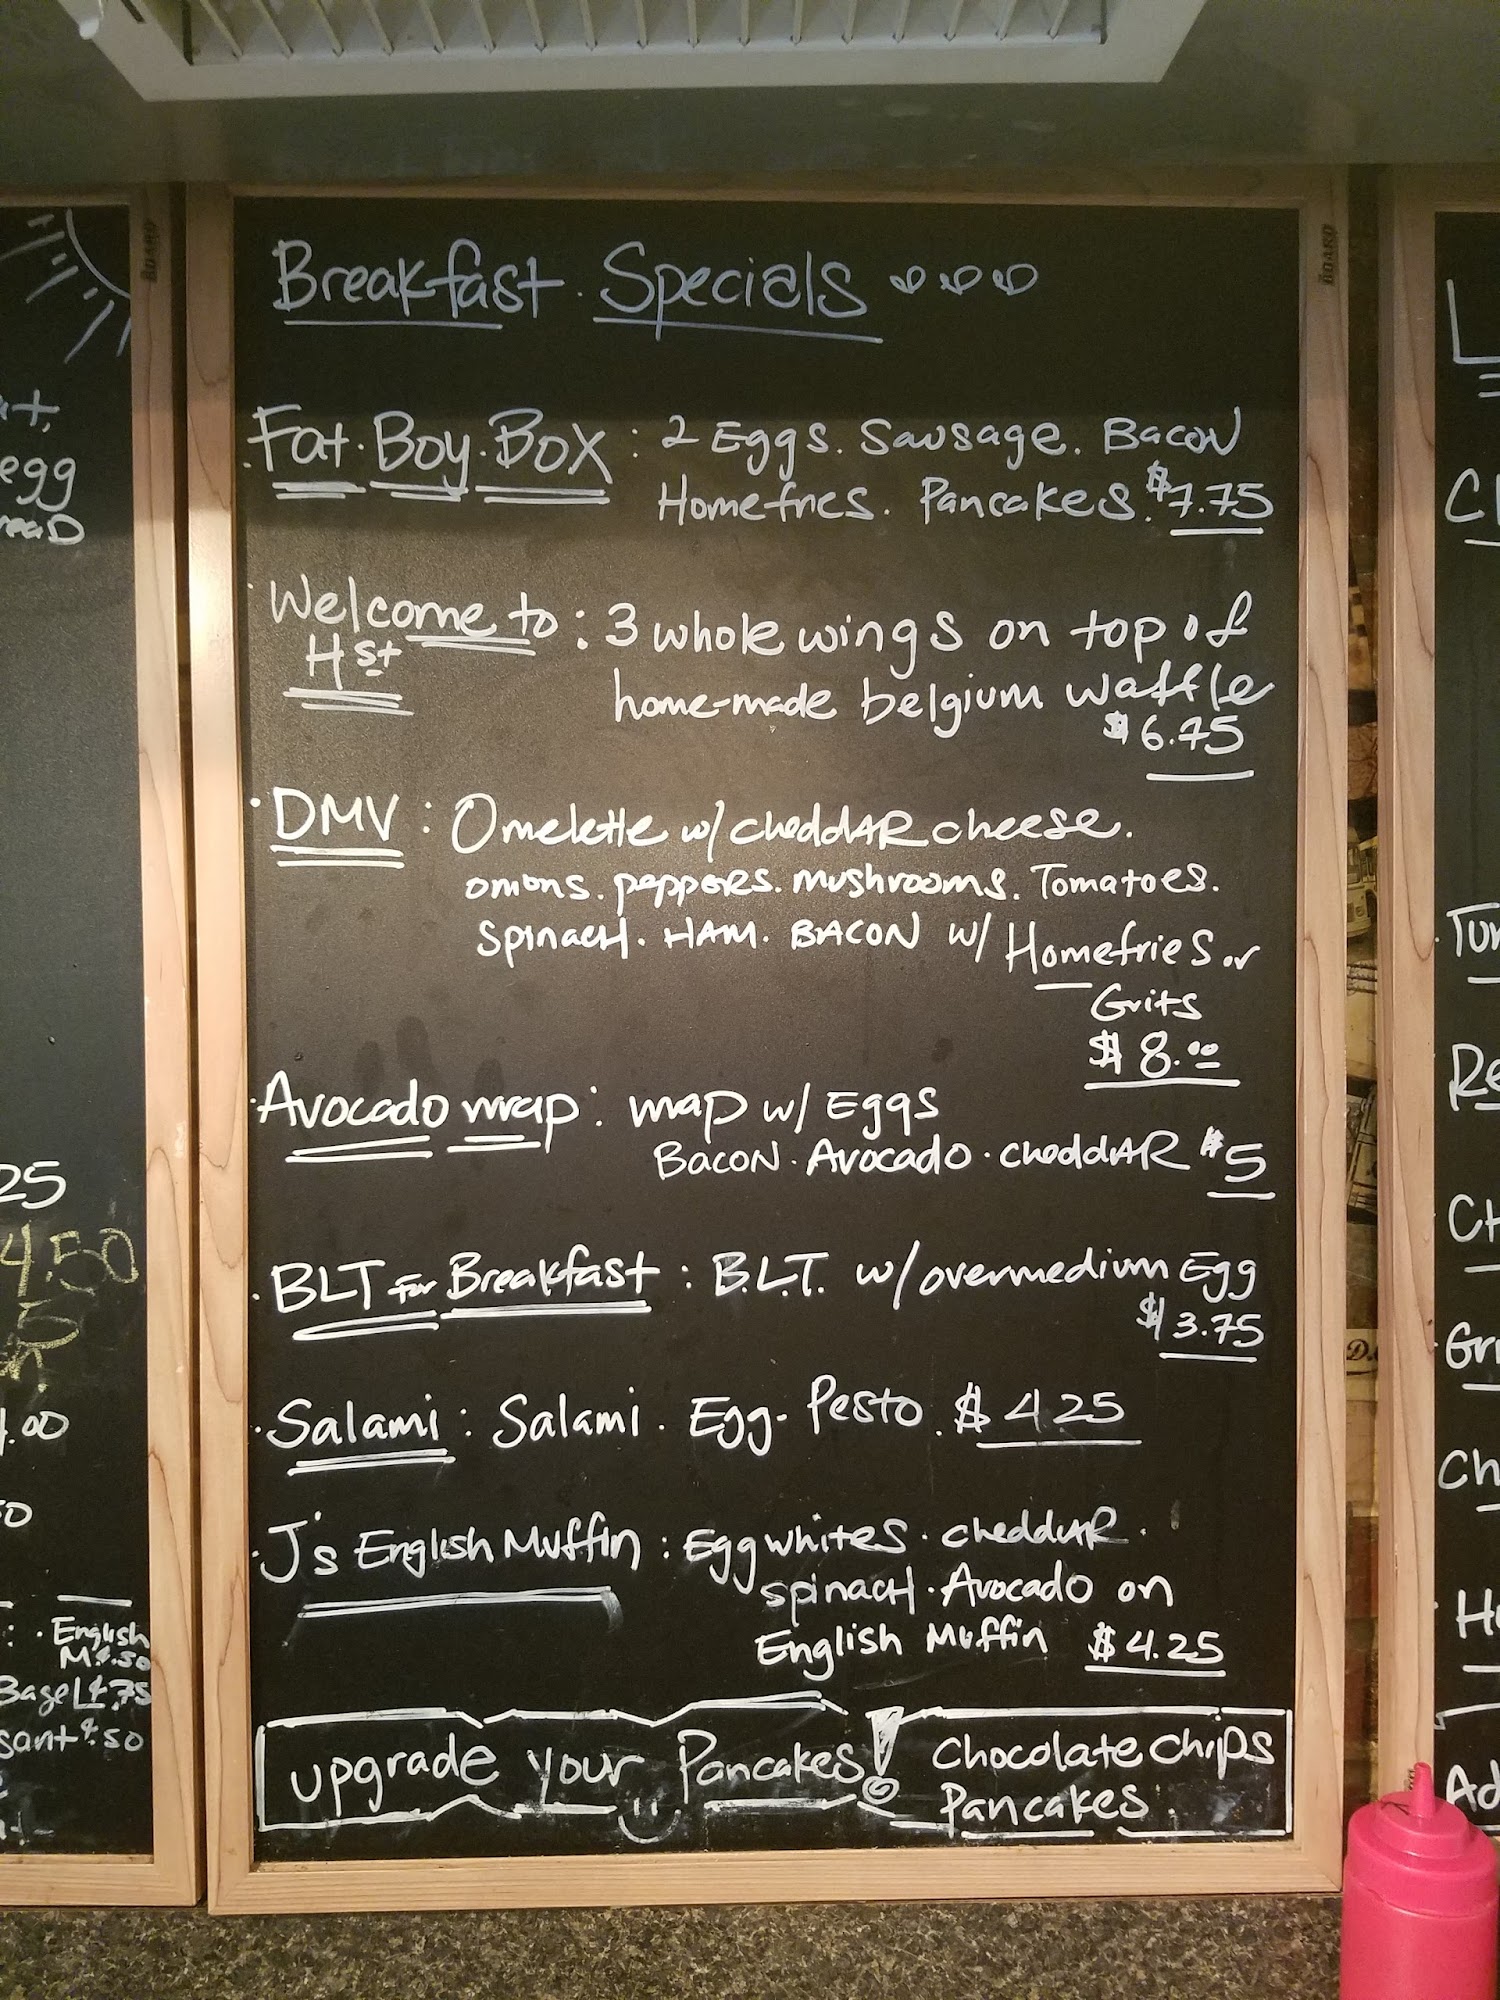 Breakfast Specials
Fat Boy Box : 2 Eggs. Sausage. Bacon
Homefries. Pancakes. $7.75
Welcome to : 3 whole wings on top of
H st home-made belgium waffle
$6.75
DMV : Omelette w/ cheddAR cheese.
onions. peppers. mushrooms. Tomatoes.
spinach. HAM. BACON w/ Homefries or
Grits
$8.00
Avocado wrap : wrap w/ Eggs
Bacon. Avocado. cheddAR $5
BLT for Breakfast : B.L.T. w/ overmedium Egg
$3.75
Salami : Salami. Egg. Pesto. $4.25
J's English Muffin : Egg whites. cheddAR.
spinach. Avocado on
English Muffin $4.25
upgrade your Pancakes! chocolate chips
Pancakes.
BOARD
BOARD
egg
25
4.50
English
M 4.50
Bagel 4.75
sant 4.50